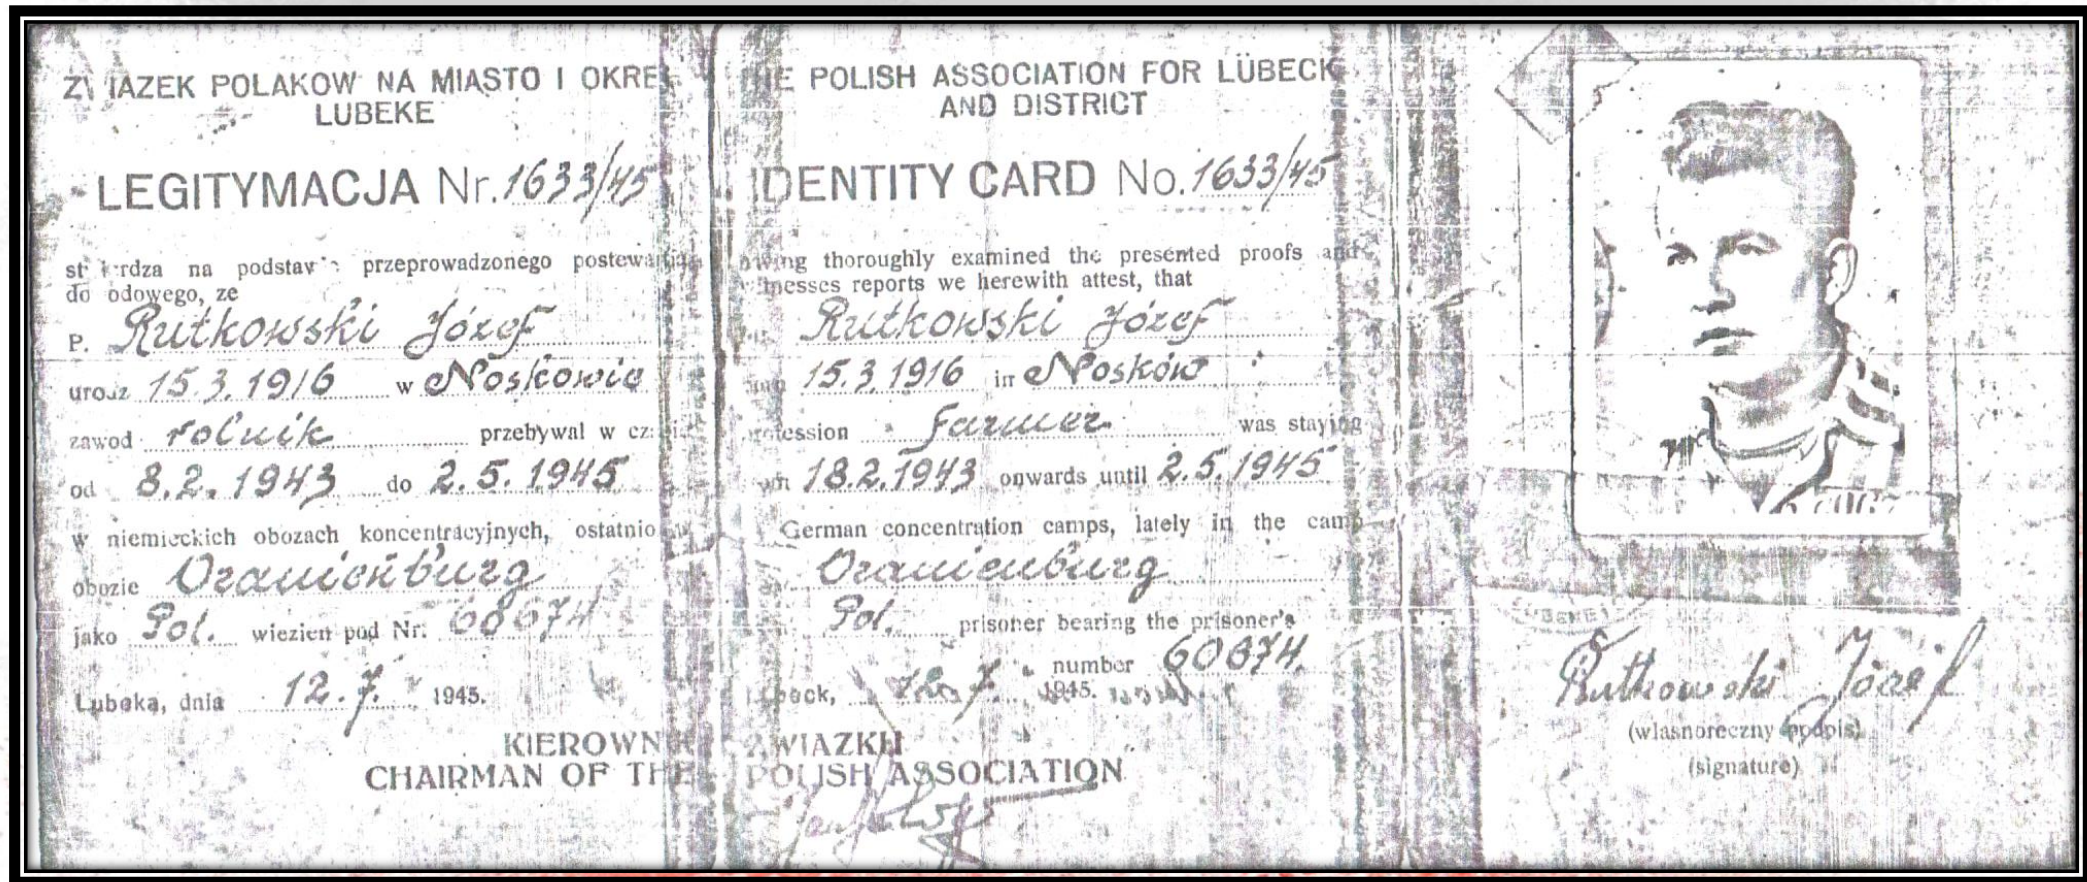 ZWIAZEK POLAKOW NA MIASTO I OKREG
LUBEKE
LEGITYMACJA Nr. 1633/45
stwierdza na podstawie przeprowadzonego postewania
dowodowego, ze
P. Rutkowski Józef
urodz 15.3.1916 w Noskowie
zawod rolnik przebywal w czasie
od 8.2.1943 do 2.5.1945
w niemieckich obozach koncentracyjnych, ostatnio w
obozie Oranienburg
jako Pol. wiezien pod Nr. 68674
Lubeka, dnia 12.7. 1945.
THE POLISH ASSOCIATION FOR LÜBECK
AND DISTRICT
IDENTITY CARD No. 1633/45
thoroughly examined the presented proofs and
witnesses reports we herewith attest, that
Rutkowski Józef
15.3.1916 in Nosków
profession Farmer was staying
from 18.2.1943 onwards until 2.5.1945
German concentration camps, lately in the camp
Oranienburg
Pol. prisoner bearing the prisoner's
number 60674
Lübeck, 12.7. 1945.
KIEROWNIK ZWIAZKU
CHAIRMAN OF THE POLISH ASSOCIATION
LUBEKE
Rutkowski Józef
(wlasnoreczny podpis)
(signature)